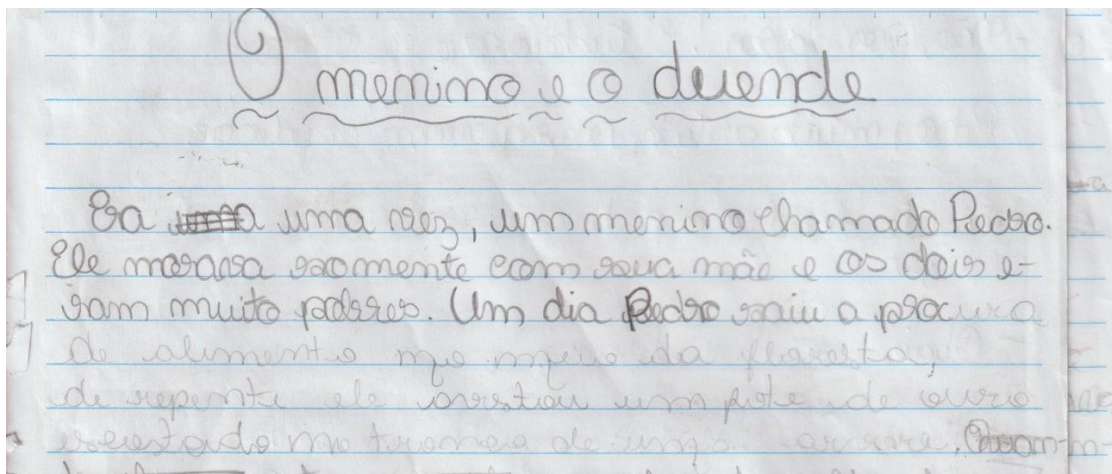 O menino e o duende
Era uma vez, um menino chamado Pedro.
Ele morava somente com sua mãe e os dois e-
ram muito pobres. Um dia Pedro saiu a procura
de alimento no meio da floresta,
de repente ele avistou um pote de ouro
encostado no tronco de uma árvore.